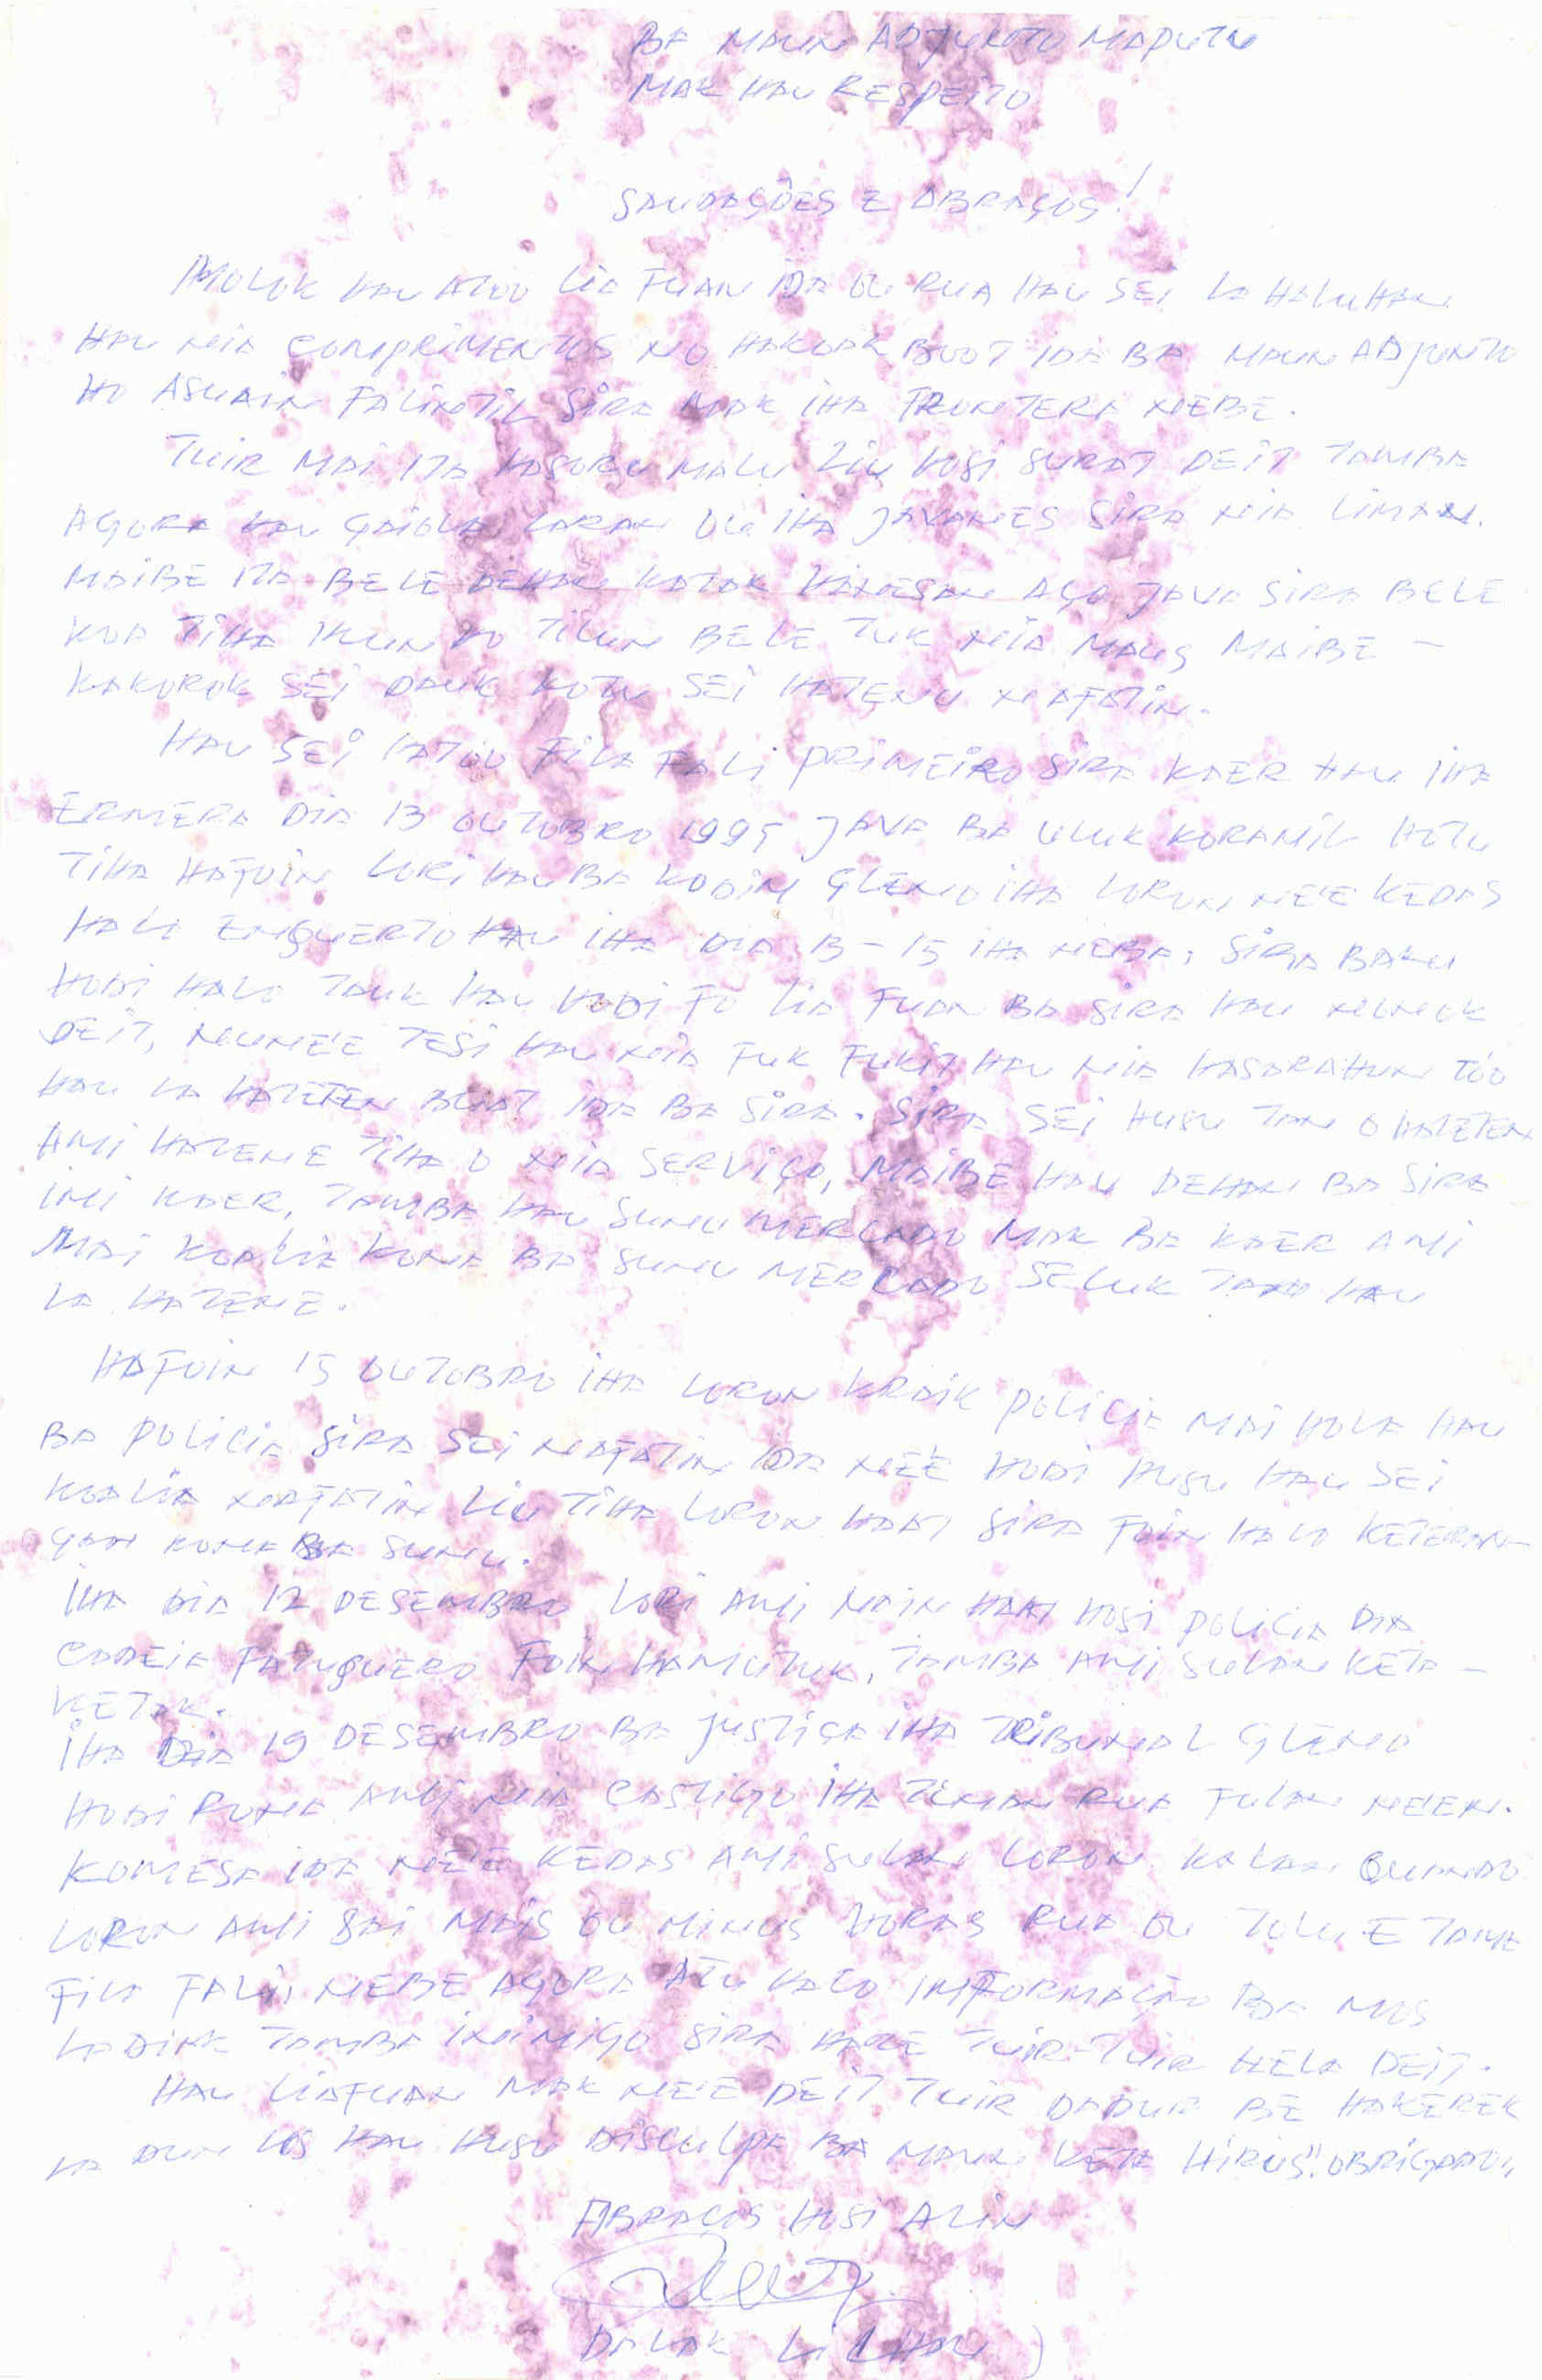 BA MAUN ADJUNTO MAPUTU
MAK HAU RESPEITO
SAUDAÇÕES E ABRAÇOS!
MOLOK HAU ATOO LIA FUAN IDA OU RUA HAU SEI LA HALUHAN
HAU NIA COMPRIMENTOS NO HAKOAK BOOT IDA BA MAUN ADJUNTO
HO ASUAIN FALINTIL SIRA MAK IHA FRONTERA NEBE.
TUIR MAI ITA HASORU MALU LIU HOSI SURAT DEIT TAMBA
AGORA HAU GAIOLA LARAN OU IHA JAVANES SIRA NIA LIMAN.
MAIBE ITA BELE DEHAN KATAK HANESAN AÇO JAVA SIRA BELE
KOA TIHA IKUN HO TILUN BELE TUK NIA MAUS MAIBE -
KAKOROK SEI DAUK KOTU SEI HATENU NAFATIN.
HAU SEI HATOO FILA FALI PRIMEIRO SIRA KAER HAU IHA
ERMERA DIA 13 OUTOBRO 1995 JAVA BA ULUK KORAMIL HOTU
TIHA HAFOIN LORI HAU BA KODIM GLENO IHA LORON NE'E KEDAS
HALO ENGUERTO HAU IHA DIA 13-15 IHA NEBA, SIRA BAKU
HODI HALO TAUK HAU HODI FO LIA FUAN BA SIRA HAU NONOK
DEIT, NUNE'E TESI HAU NIA FUK FUKIT HAU NIA HASARAHUN TOO
HAU LA HATETEN BUAT IDA BA SIRA. SIRA SEI HUSU TAN O HATETEN
AMI HATENE TIHA O NIA SERVIÇO, MAIBE HAU DEHAN BA SIRA
IMI KAER, TAMBA HAU SUNU MERCADO MAK BA KAER AMI
MAI KOALIA KONA BA SUNU MERCADO SELUK TAN HAU
LA HATENE.
HAFOIN 15 OUTOBRO IHA LORON KRAIK POLICIA MAI HOLA HAU
BA POLICIA SIRA SEI NAFATIN IDA NE'E HODI HUSU HAU SEI
KOALIA NAFATIN LIU TIHA LORON HAAT SIRA FOIN HALO KETERAN-
GAN KONA BA SUNU.
IHA DIA 12 DESEMBRO LORI AMI NAIN HAAT HOSI POLICIA DIA
CADEIA FATUGUERO FOIN HAMUTUK, TAMBA AMI SULAN KETA-
KETAK.
IHA DIA 19 DESEMBRO BA JUSTIÇA IHA TRIBUNAL GLENO
HODI FONA AMI NIA CASTIGO IHA TINAN RUA FULAN NE'EN.
KOMESA IDA NE'E KEDAS AMI SULAN LORON KALAN QUANDO
LORON AMI SAI MAIS OU MINUS HORAS RUA OU TOLU E TAMA
FILA FALI, NEBE AGORA ATU HALO INFORMAÇÃO BA MOS
LADIAK TAMBA INIMIGO SIRA HARE TUIR-TUIR HELA DEIT.
HAU LIAFUAN MAK NE'E DEIT TUIR DADUR BE HAKEREK
LA DUN LOS HAU HUSU DISCULPA BA MAUN KETA HIRUS". OBRIGADO,,
ABRACOS HOSI ALIN
DALAK LI LHAU)